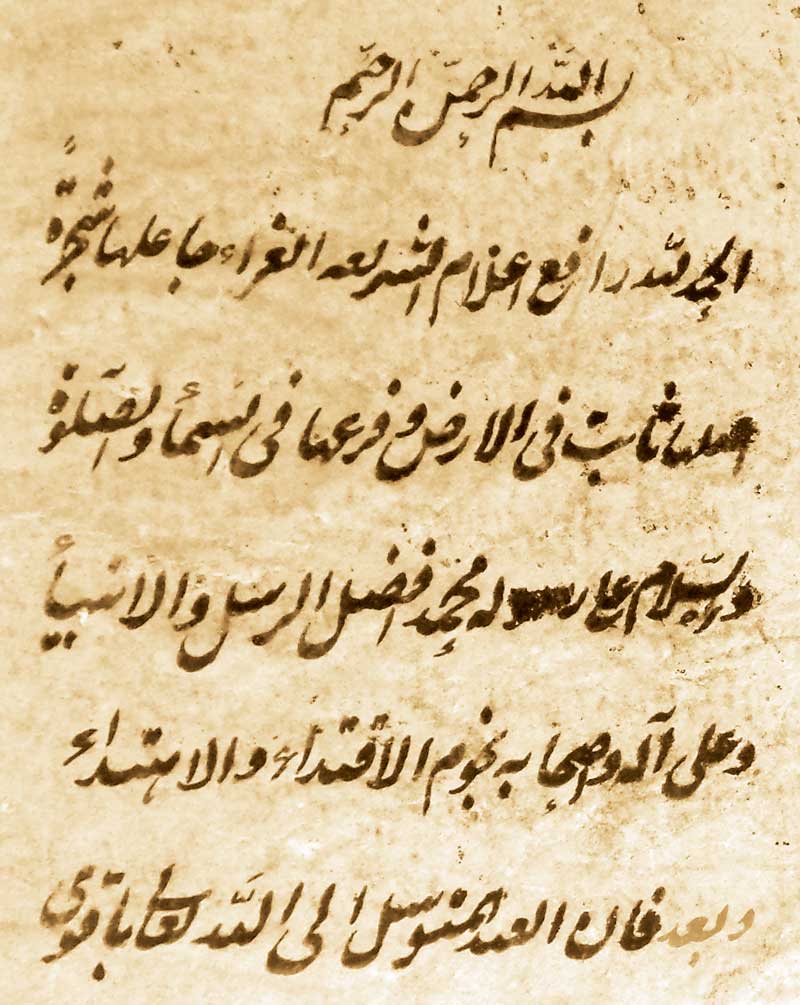 بسم الله الرحمن الرحيم
الحمد لله رافع اعلام الشريعه الغراء جاعلها شجرةً
اصلها ثابت فى الارض و فرعها فى السمأ والصلوة
والسلام على رسوله محمد افضل الرسل والانبيأ
وعلى آله واصحابه نجوم الاقتداء والاهتداء
وبعد فان العبد المتوسل الى الله تعالى باقوى